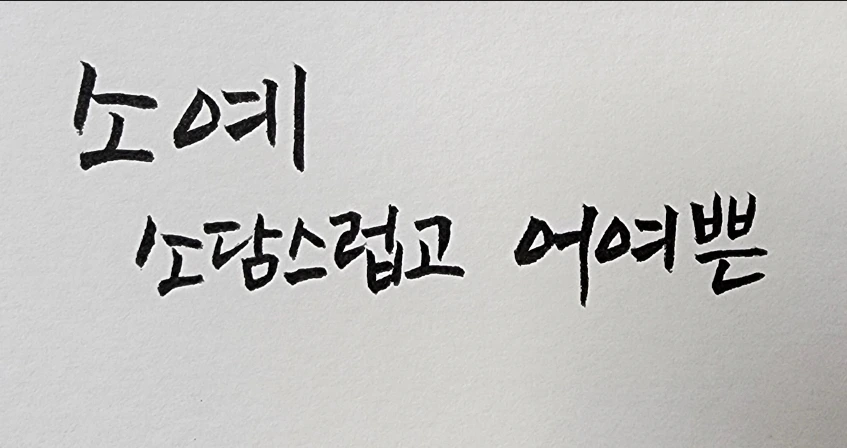 소예
소담스럽고 어여쁜